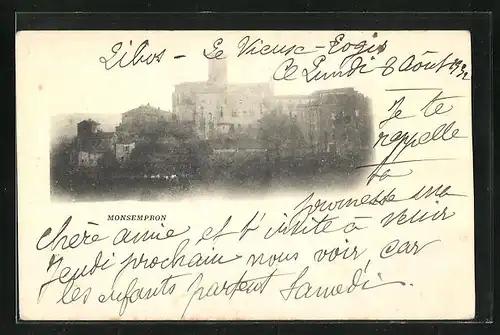 Libos - Le Vieux-Logis
Ce Lundi 8 Août
Je te
rappelle
ta
promesse ma
MONSEMPRON
chère amie et t'invite à venir
Jeudi prochain nous voir, car
les enfants partent Samedi.